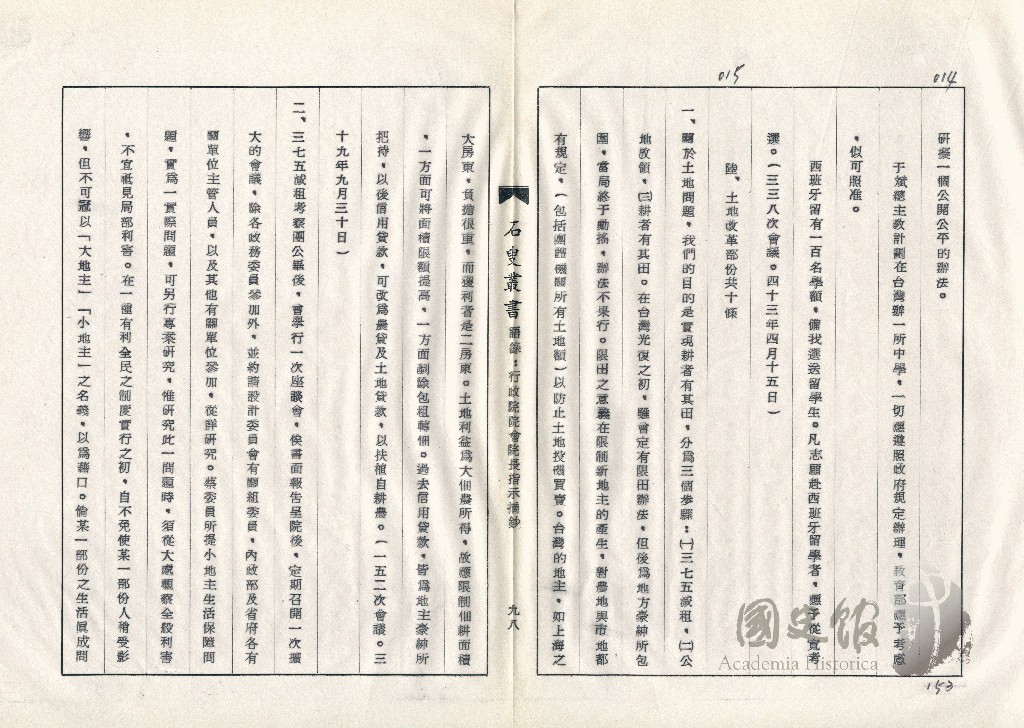 014
015
研擬一個公開公平的辦法。
于斌總主教計劃在台灣辦一所中學，一切應遵照政府規定辦理，教育部應予考慮
，似可照准。
西班牙留有一百名學額，備我選送留學生。凡志願赴西班牙留學者，應予從寬考
選。（三三八次會議。四十三年四月十五日）
陸、土地改革部份共十條
一、關於土地問題，我們的目的是實現耕者有其田，分為三個步驟：㈠三七五減租，㈡公
地放領，㈢耕者有其田。在台灣光復之初，雖曾定有限田辦法，但後為地方豪紳所包
圍，當局終于動搖，辦法不果行。限田之意義在限制新地主的產生，對農地與市地都
有規定，（包括團體機關所有土地額）以防止土地投機買賣。台灣的地主，如上海之
石叟叢書 語錄：行政院院會院長指示摘鈔 九八
大房東，負擔很重，而獲利者是二房東。土地利益為大佃農所得，故應限制佃耕面積
，一方面可將面積限額提高，一方面剷除包租轉佃。過去信用貸款，皆為地主豪紳所
把持，以後信用貸款，可改為農貸及土地貸款，以扶植自耕農。（一五二次會議。三
十九年九月三十日）
二、三七五減租考察團公畢後，曾舉行一次座談會，俟書面報告呈院後，定期召開一次擴
大的會議，除各政務委員參加外，並約請設計委員會有關組委員，內政部及省府各有
關單位主管人員，以及其他有關單位參加，從詳研究。蔡委員所提小地主生活保障問
題，實為一實際問題，可另行專案研究，惟研究此一問題時，須從大處觀察全般利害
，不宜祇見局部利害。在一種有利全民之制度實行之初，自不免使某一部份人稍受影
響，但不可冠以「大地主」「小地主」之名義，以為藉口。倘某一部份之生活眞成問
國史館
Academia Historica
153